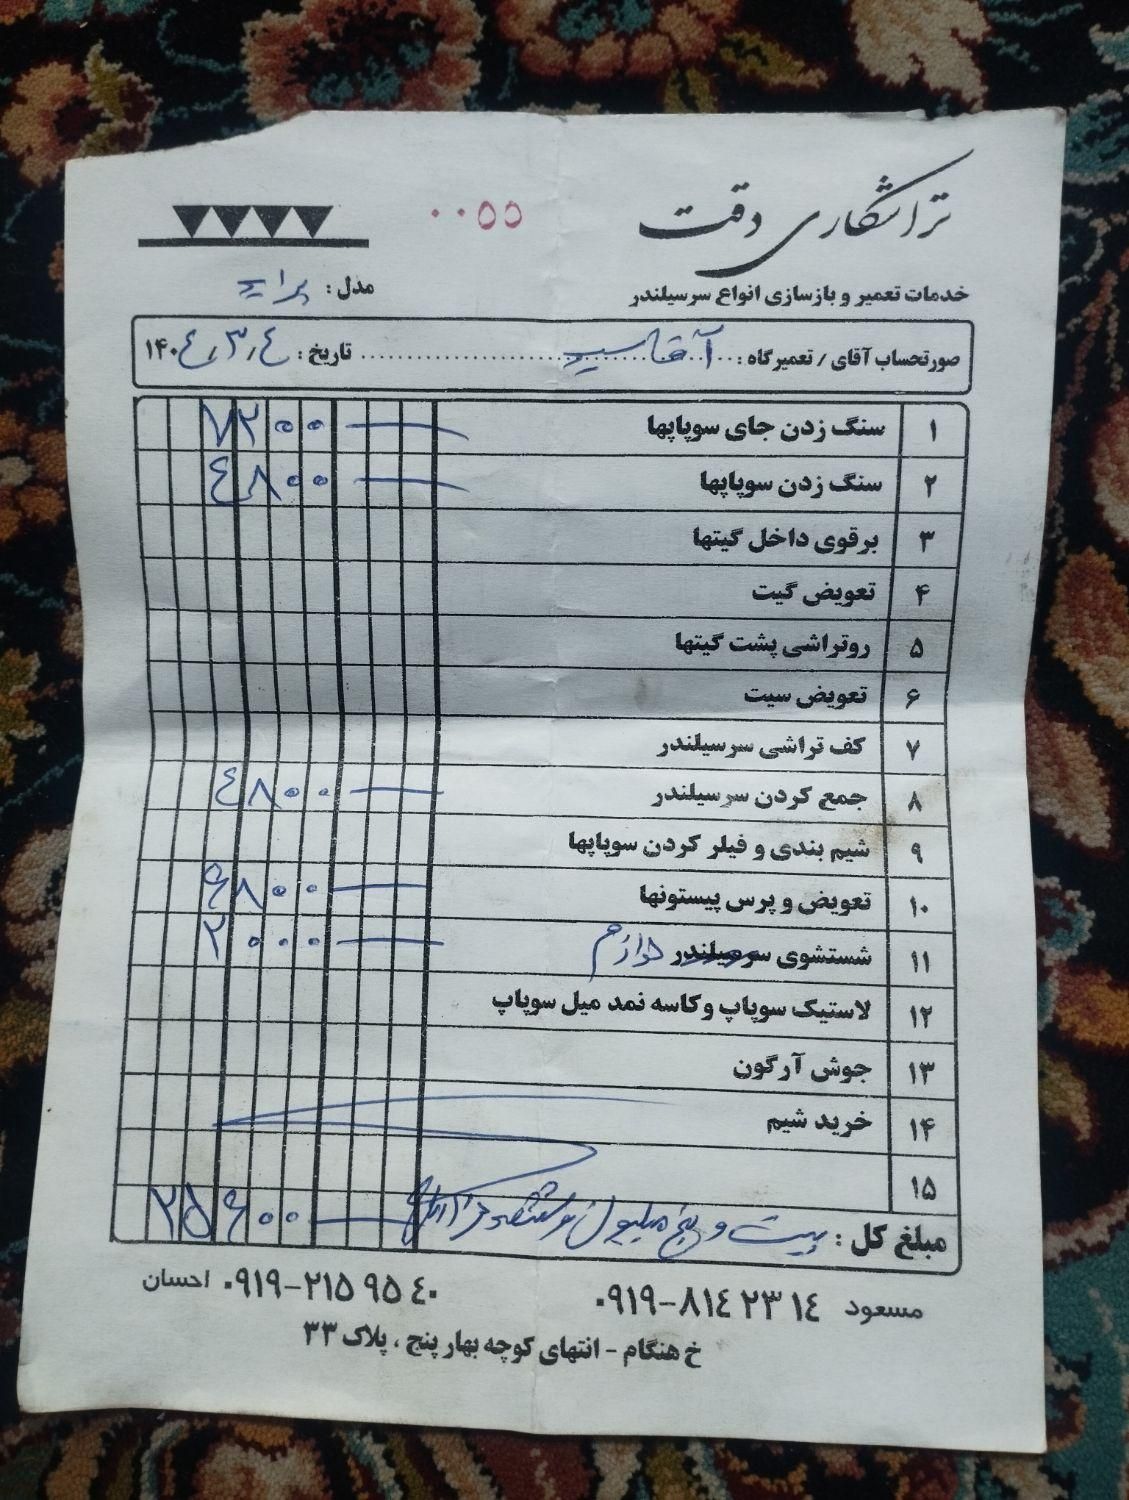 تراشکاری دقت
۰۰۵۵
خدمات تعمیر و بازسازی انواع سرسیلندر
مدل : پراید
صورتحساب آقای / تعمیرگاه : آقا سید تاریخ : ۱۴۰٤/۳/٤
۱ سنگ زدن جای سوپاپها ۷۲۰۰
۲ سنگ زدن سوپاپها ٤۸۰۰
۳ برقوی داخل گیتها
۴ تعویض گیت
۵ روتراشی پشت گیتها
۶ تعویض سیت
۷ کف تراشی سرسیلندر
۸ جمع کردن سرسیلندر ٤۸۰۰
۹ شیم بندی و فیلر کردن سوپاپها
۱۰ تعویض و پرس پیستونها ۶۸۰۰
۱۱ شستشوی سرسیلندر لوازم ۲۰۰۰
۱۲ لاستیک سوپاپ وکاسه نمد میل سوپاپ
۱۳ جوش آرگون
۱۴ خرید شیم
۱۵
مبلغ کل : بیست و پنج میلیون و ششصد هزار ۲۵۶۰۰
مسعود ۰۹۱۹-۸۱٤ ۲۳ ۱٤
۰۹۱۹-۲۱۵ ۹۵ ٤۰ احسان
خ هنگام - انتهای کوچه بهار پنج ، پلاک ۳۳